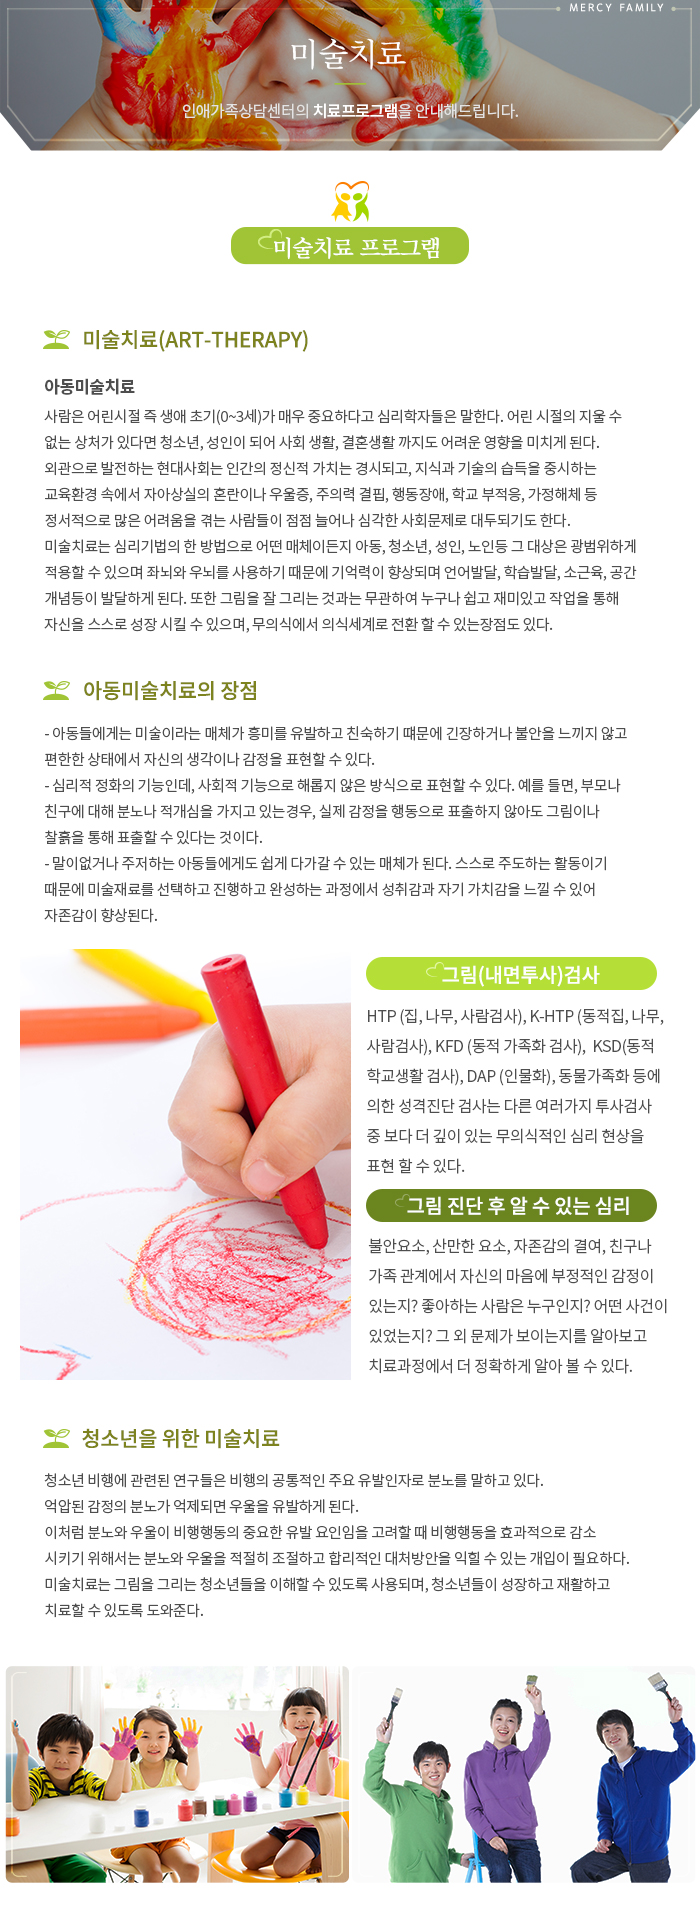 MERCY FAMILY
미술치료
인애가족상담센터의 치료프로그램을 안내해드립니다.
미술치료 프로그램
미술치료(ART-THERAPY)
아동미술치료
사람은 어린시절 즉 생애 초기(0~3세)가 매우 중요하다고 심리학자들은 말한다. 어린 시절의 지울 수
없는 상처가 있다면 청소년, 성인이 되어 사회 생활, 결혼생활 까지도 어려운 영향을 미치게 된다.
외관으로 발전하는 현대사회는 인간의 정신적 가치는 경시되고, 지식과 기술의 습득을 중시하는
교육환경 속에서 자아상실의 혼란이나 우울증, 주의력 결핍, 행동장애, 학교 부적응, 가정해체 등
정서적으로 많은 어려움을 겪는 사람들이 점점 늘어나 심각한 사회문제로 대두되기도 한다.
미술치료는 심리기법의 한 방법으로 어떤 매체이든지 아동, 청소년, 성인, 노인등 그 대상은 광범위하게
적용할 수 있으며 좌뇌와 우뇌를 사용하기 때문에 기억력이 향상되며 언어발달, 학습발달, 소근육, 공간
개념등이 발달하게 된다. 또한 그림을 잘 그리는 것과는 무관하여 누구나 쉽고 재미있고 작업을 통해
자신을 스스로 성장 시킬 수 있으며, 무의식에서 의식세계로 전환 할 수 있는장점도 있다.
아동미술치료의 장점
- 아동들에게는 미술이라는 매체가 흥미를 유발하고 친숙하기 떄문에 긴장하거나 불안을 느끼지 않고
편한한 상태에서 자신의 생각이나 감정을 표현할 수 있다.
- 심리적 정화의 기능인데, 사회적 기능으로 해롭지 않은 방식으로 표현할 수 있다. 예를 들면, 부모나
친구에 대해 분노나 적개심을 가지고 있는경우, 실제 감정을 행동으로 표출하지 않아도 그림이나
찰흙을 통해 표출할 수 있다는 것이다.
- 말이없거나 주저하는 아동들에게도 쉽게 다가갈 수 있는 매체가 된다. 스스로 주도하는 활동이기
때문에 미술재료를 선택하고 진행하고 완성하는 과정에서 성취감과 자기 가치감을 느낄 수 있어
자존감이 향상된다.
그림(내면투사)검사
HTP (집, 나무, 사람검사), K-HTP (동적집, 나무,
사람검사), KFD (동적 가족화 검사), KSD(동적
학교생활 검사), DAP (인물화), 동물가족화 등에
의한 성격진단 검사는 다른 여러가지 투사검사
중 보다 더 깊이 있는 무의식적인 심리 현상을
표현 할 수 있다.
그림 진단 후 알 수 있는 심리
불안요소, 산만한 요소, 자존감의 결여, 친구나
가족 관계에서 자신의 마음에 부정적인 감정이
있는지? 좋아하는 사람은 누구인지? 어떤 사건이
있었는지? 그 외 문제가 보이는지를 알아보고
치료과정에서 더 정확하게 알아 볼 수 있다.
청소년을 위한 미술치료
청소년 비행에 관련된 연구들은 비행의 공통적인 주요 유발인자로 분노를 말하고 있다.
억압된 감정의 분노가 억제되면 우울을 유발하게 된다.
이처럼 분노와 우울이 비행행동의 중요한 유발 요인임을 고려할 때 비행행동을 효과적으로 감소
시키기 위해서는 분노와 우울을 적절히 조절하고 합리적인 대처방안을 익힐 수 있는 개입이 필요하다.
미술치료는 그림을 그리는 청소년들을 이해할 수 있도록 사용되며, 청소년들이 성장하고 재활하고
치료할 수 있도록 도와준다.